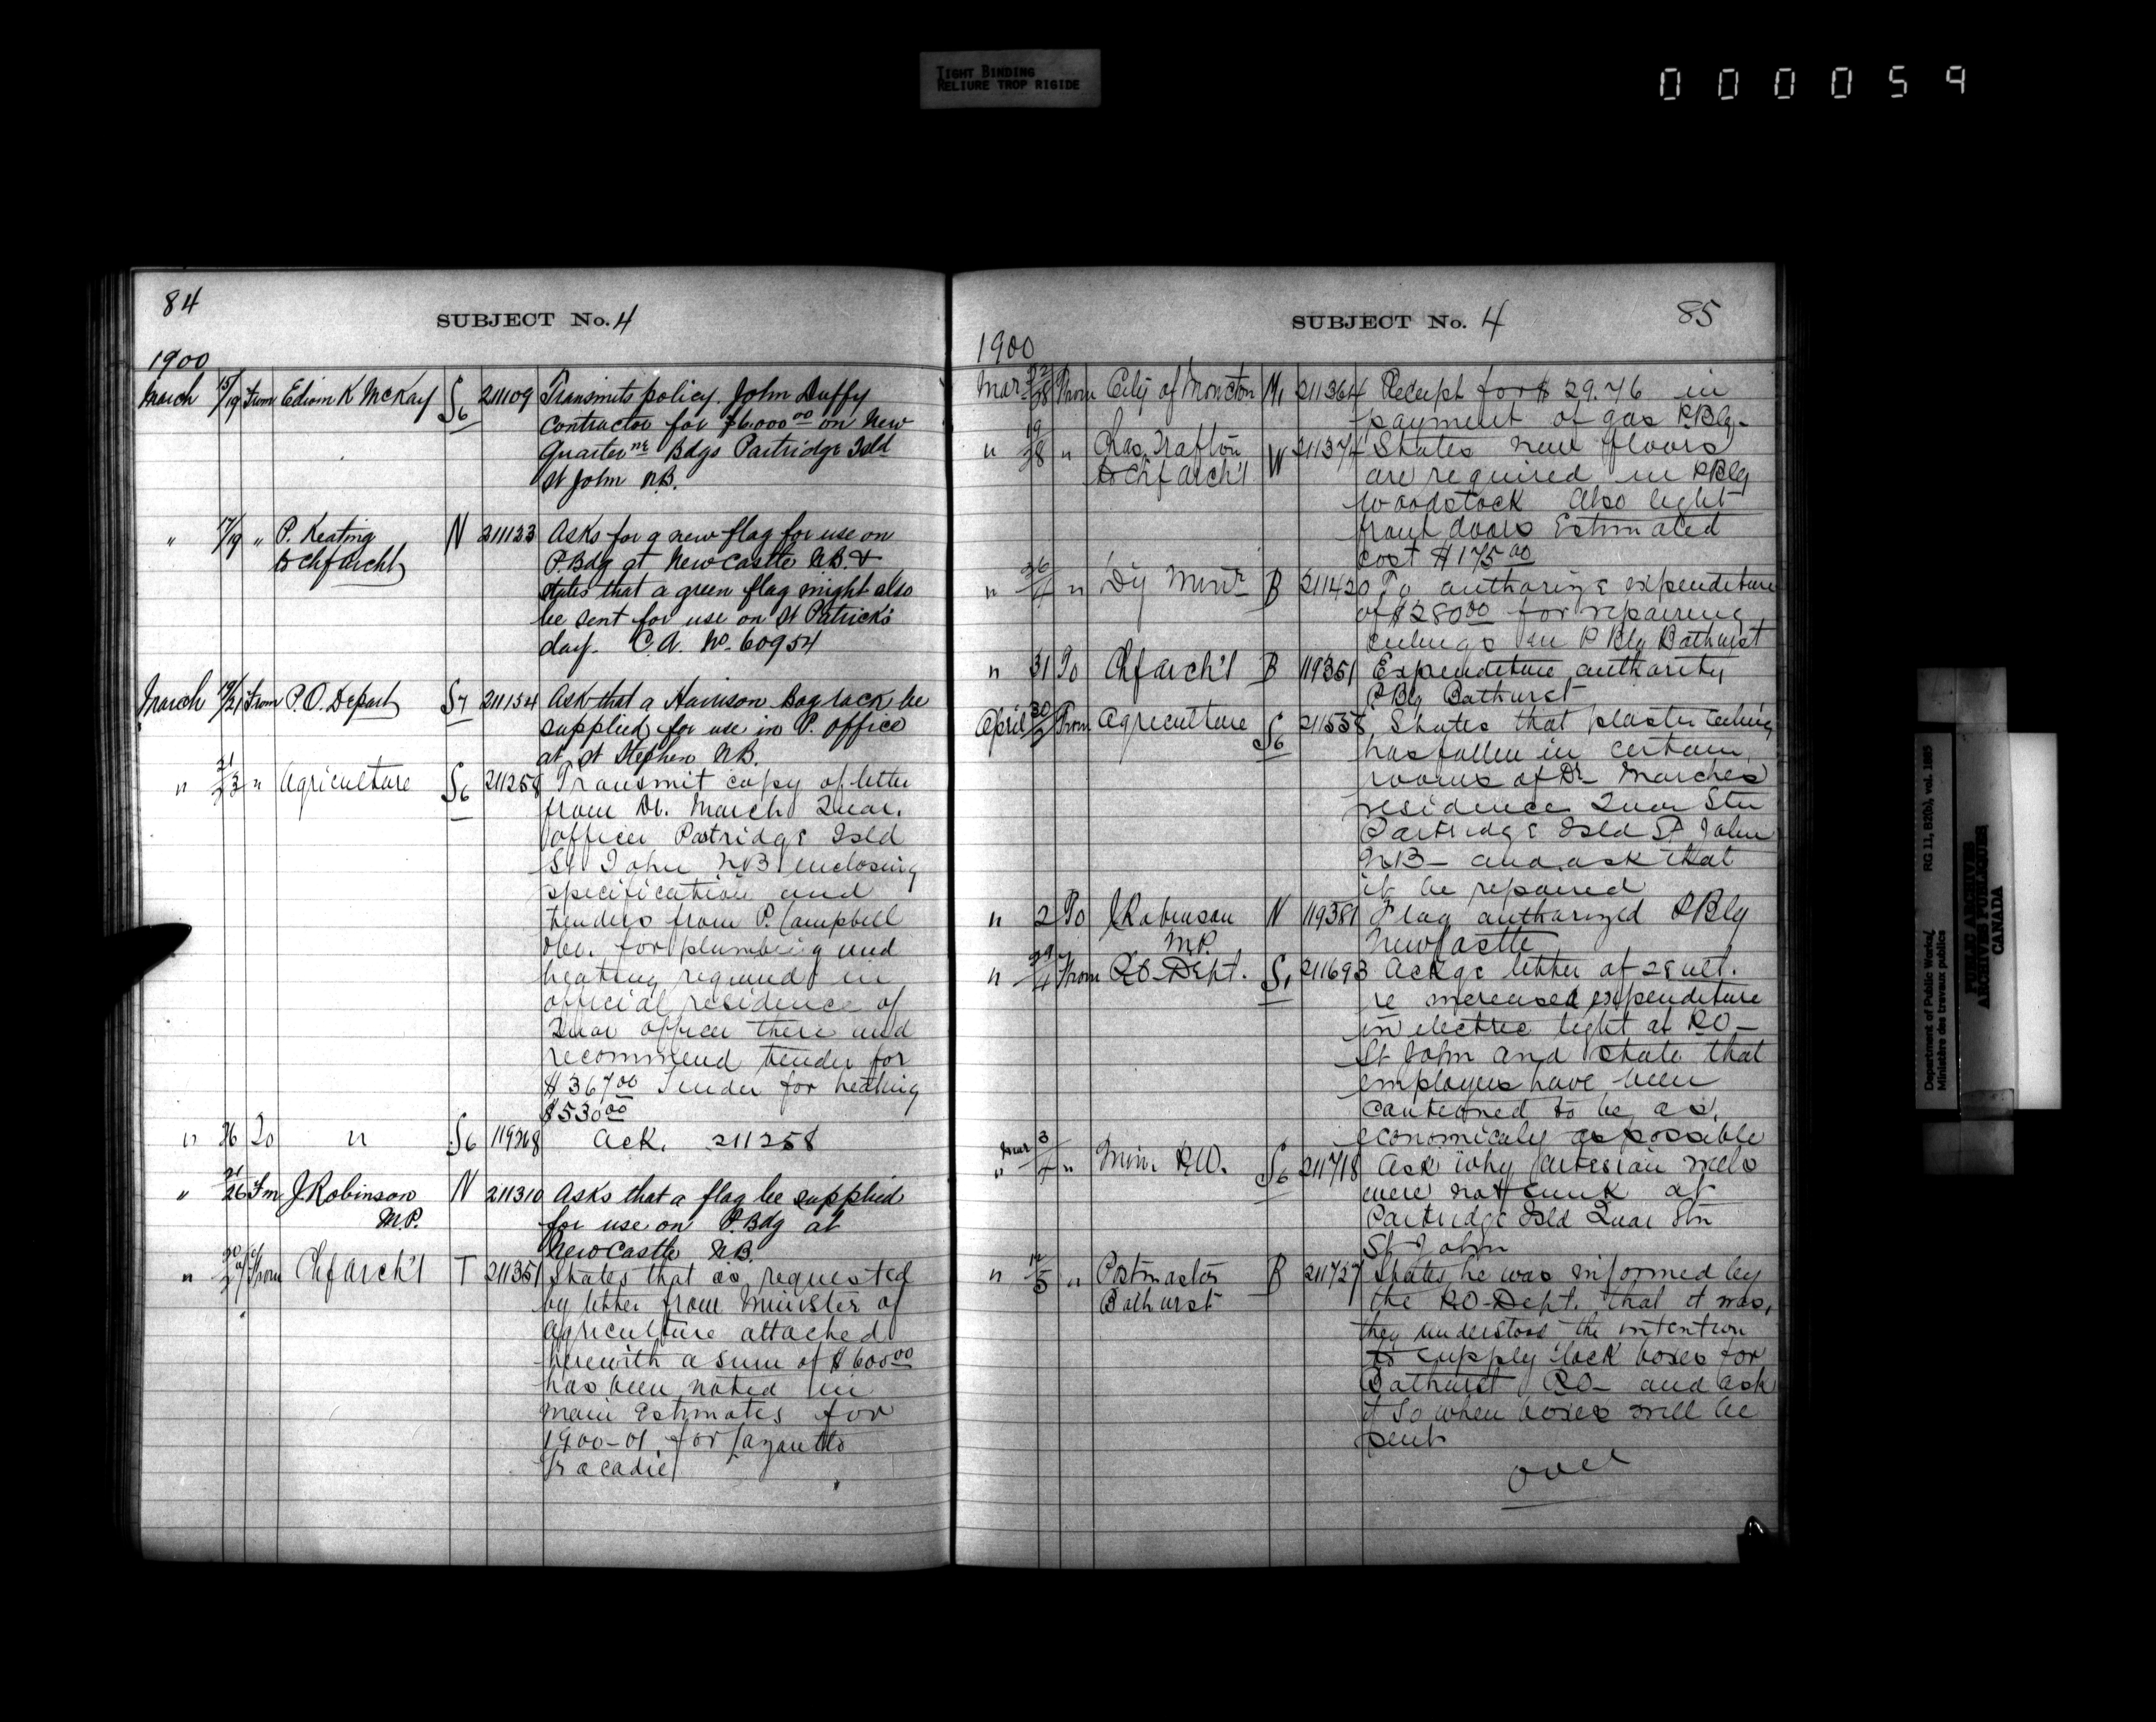 TIGHT BINDING
RELIURE TROP RIGIDE
000059
84
SUBJECT No. 4
1900
March 15/19 From Edwin K McKay S6 211109 Transmits policy. John Duffy
Contractor for $6.000 00 on New
Quarter ne Bdgs Partridge Isld
St John N.B.
" 17/19 " P. Keating N 211123 Asks for a new flag for use on
to Chf Archt P. Bdg at New Castle N.B. &
states that a green flag might also
be sent for use on St Patrick's
day. C.A. No. 60954
March 19/21 From P.O. Depart S7 211154 Ask that a Harrison Bag rack be
supplied for use in P. office
at St Stephen N.B.
" 21/23 " Agriculture S6 211258 Transmit copy of letter
from Dr. March Quar.
officer Partridge Isld
St John NB enclosing
specification and
tenders from P. Campbell
for plumbing and
heating required in
official residence of
Quar officer there and
recommend tender for
$367 00 Tender for heating
$530 00
" 26 To " S6 119268 Ack. 211258
" 21/26 Fm J Robinson N 211310 Asks that a flag be supplied
M.P. for use on P. Bdg at
New Castle N.B.
" From Chf Arch't T 211351 States that as requested
by letter from Minister of
Agriculture attached
herewith a sum of $600 00
has been noted in
Main Estimates for
1900-01 for Lazaretto
Tracadie
85
SUBJECT No. 4
1900
Mar 22/28 From City of Moncton M1 211364 Receipt for $29.76 in
payment of gas P Blg.
" 19/28 " Chas. Trafton W 211374 States new floors
to Chf Arch't are required in P Blg
Woodstock Also light
front doors Estimated
cost $175 00
" " Dy Minr B 211420 To authorize expenditure
of $280 00 for repairing
ceilings in P Blg Bathurst
" 31 To Chf Arch't B 119351 Expenditure authority
P Blg Bathurst
April 30/2 From Agriculture S6 211558 States that plaster ceiling
has fallen in certain
rooms of Dr Marches
residence Quar Stn
Partridge Isld St John
NB - and ask that
it be repaired
" 2 To J Robinson N 119381 Flag authorized P Blg
M.P. New Castle
" 29/4 From P.O. Dept. S1 211693 Ackge letter of 28 ult.
re increased expenditure
in electric light at P.O -
St John and state that
employees have been
cautioned to be as
economicaly as possible
" Mar 3/ " Min. P.W. S6 211718 Ask why artesian wells
were not sunk at
Partridge Isld Quar Stn
St John
" /5 " Postmaster B 211727 States he was informed by
Bathurst the P.O - Dept. that it was,
they understood the intention
to supply lock boxes for
Bathurst P.O - and ask
if so when boxes will be
sent
over
Department of Public Works/
Ministère des travaux publics
RG 11, B2(b), vol. 1885
PUBLIC ARCHIVES
ARCHIVES PUBLIQUES
CANADA